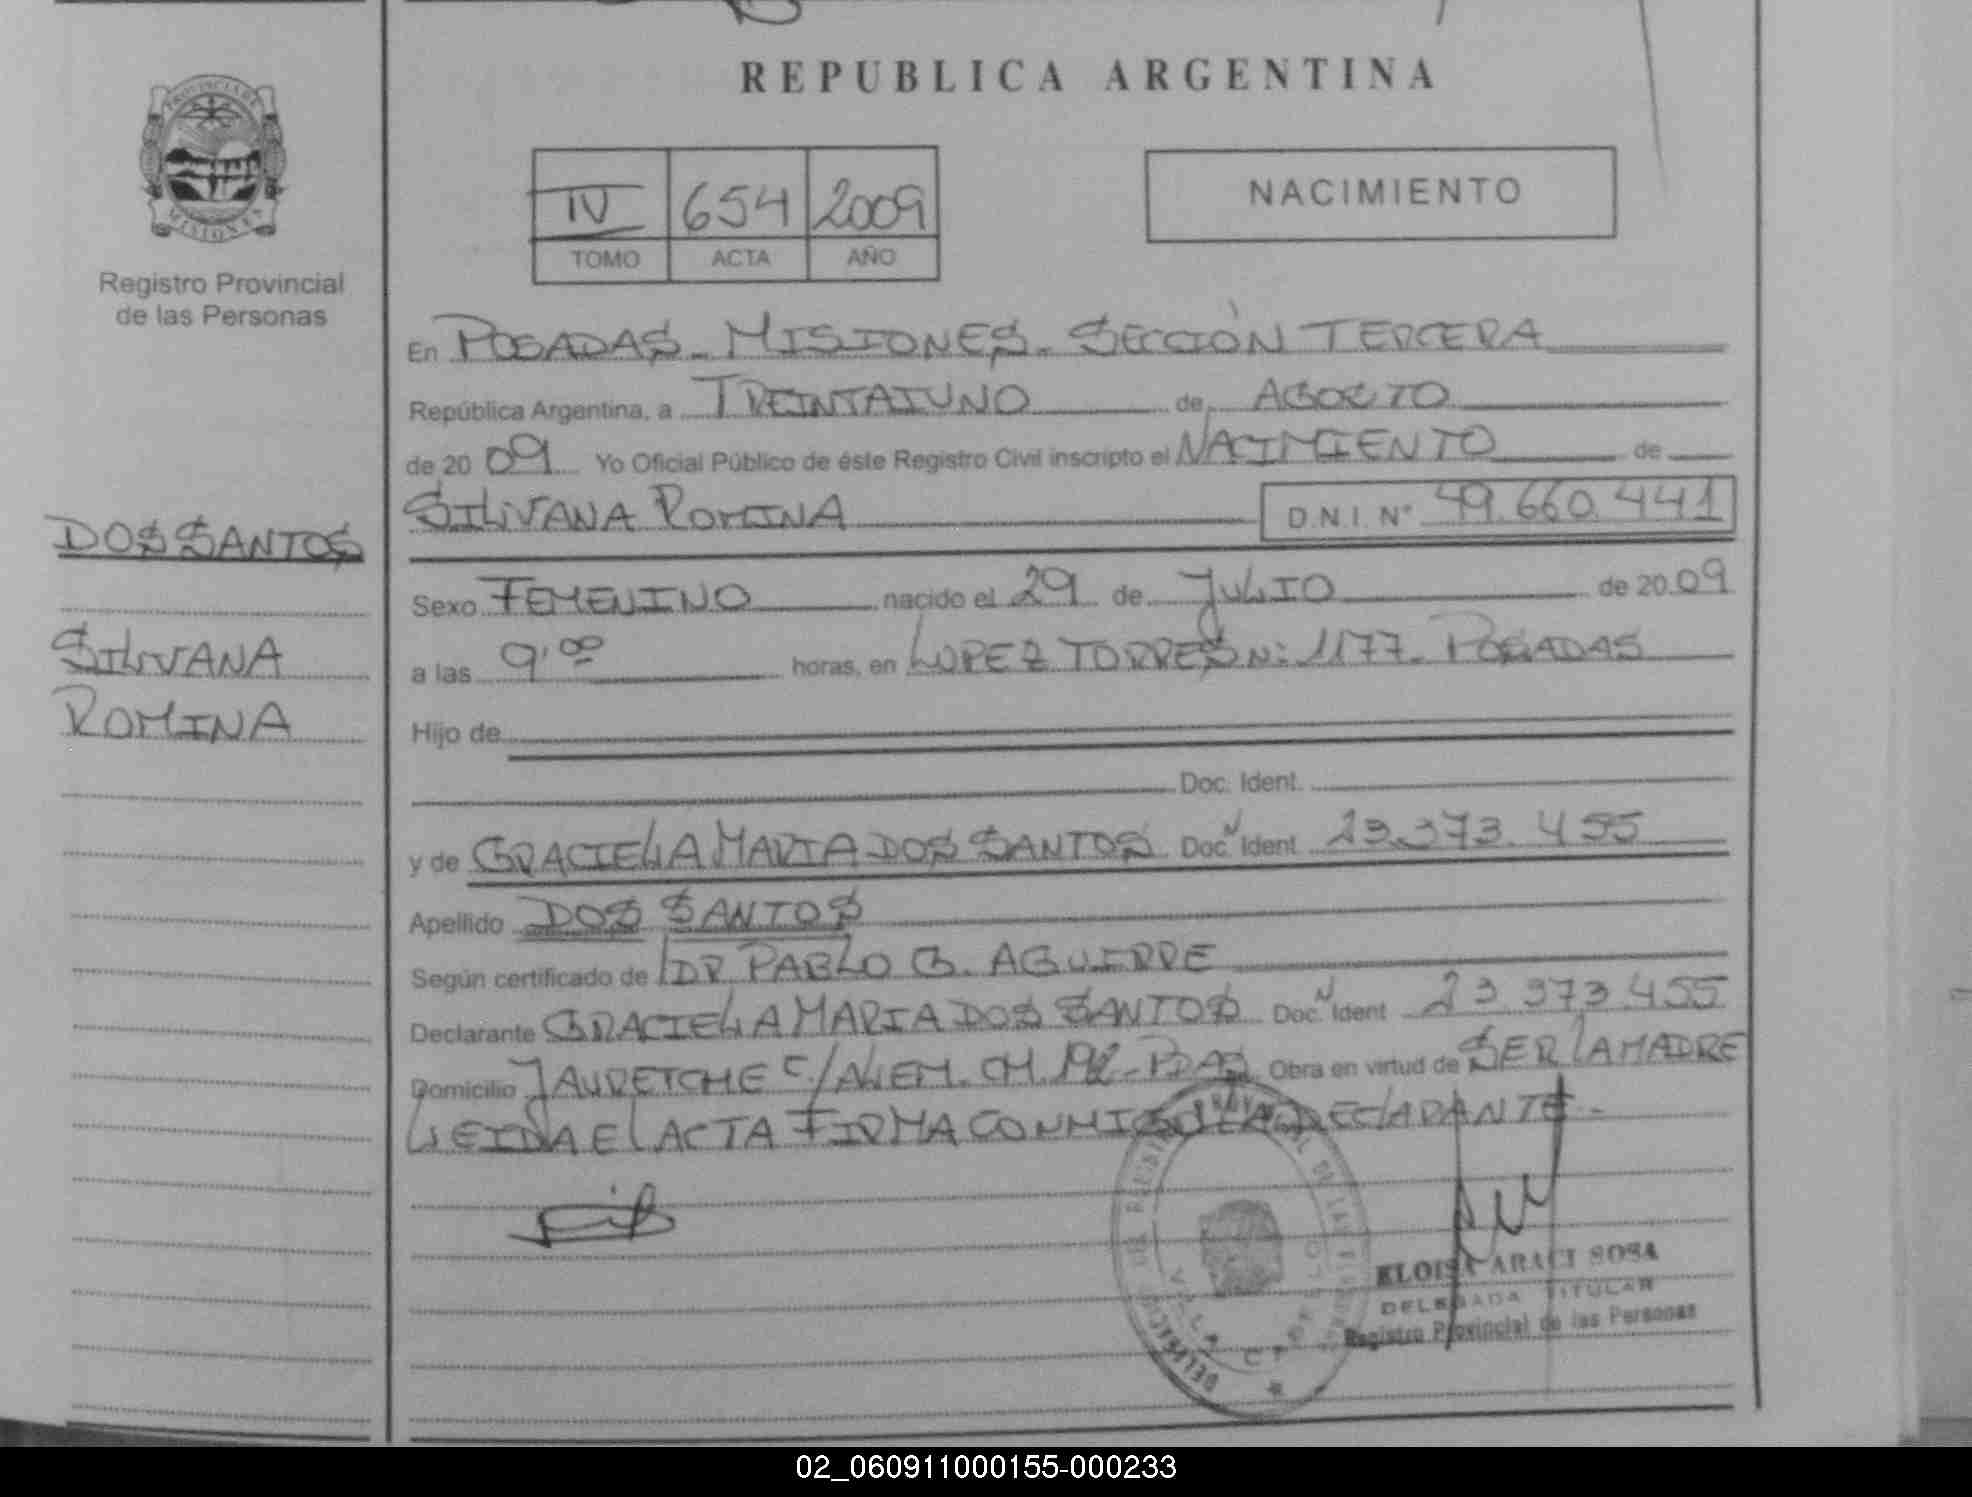 REPUBLICA ARGENTINA
PROVINCIA DE
MISIONES
Registro Provincial
de las Personas
IV 654 2009
TOMO ACTA AÑO
NACIMIENTO
En POSADAS - MISIONES - SECCIÓN TERCERA
República Argentina, a TREINTAIUNO de AGOSTO
de 2009 Yo Oficial Público de éste Registro Civil inscripto el NACIMIENTO de
SILVANA ROMINA D.N.I. N° 49.660.441
DOS SANTOS
SILVANA
ROMINA
Sexo FEMENINO nacido el 29 de JULIO de 2009
a las 9,00 horas, en LOPEZ TORRES N: 1177 - POSADAS
Hijo de
Doc. Ident.
y de GRACIELA MARIA DOS SANTOS Doc. N Ident 23.373.455
Apellido DOS SANTOS
Según certificado de DR PABLO G. AGUIRRE
Declarante GRACIELA MARIA DOS SANTOS Doc. N Ident 23.373.455
Domicilio JAURETCHE C/ALEM. CH. 192 - PDAS Obra en virtud de SER LA MADRE
LEIDA EL ACTA FIRMA CONMIGO LA DECLARANTE -
VILLA CABELLO
ELOISA ARACI SOSA
DELEGADA TITULAR
Registro Provincial de las Personas
02_060911000155-000233